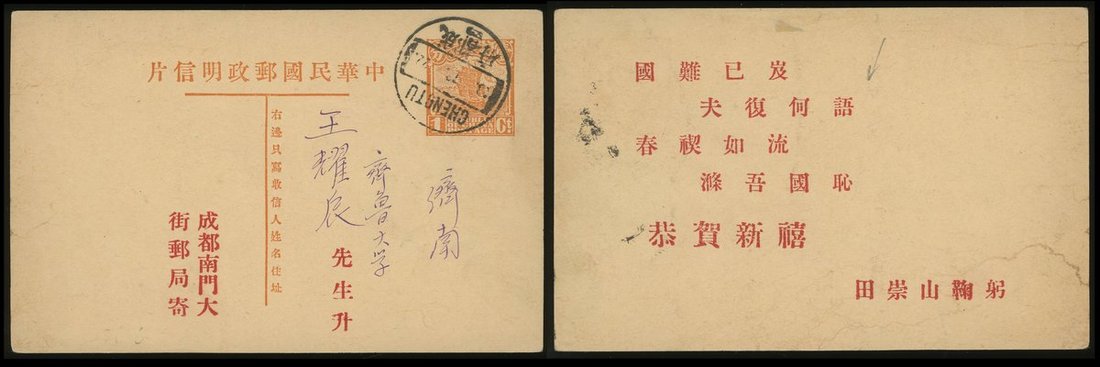 中華民國郵政明信片
CHENGTU
濟南
齊魯大学
王耀良
先生升
右邊只寫收信人姓名住址
成都南門大
街郵局寄
國難已岌
夫復何語
春禊如流
滌吾國恥
恭賀新禧
田崇山鞠躬